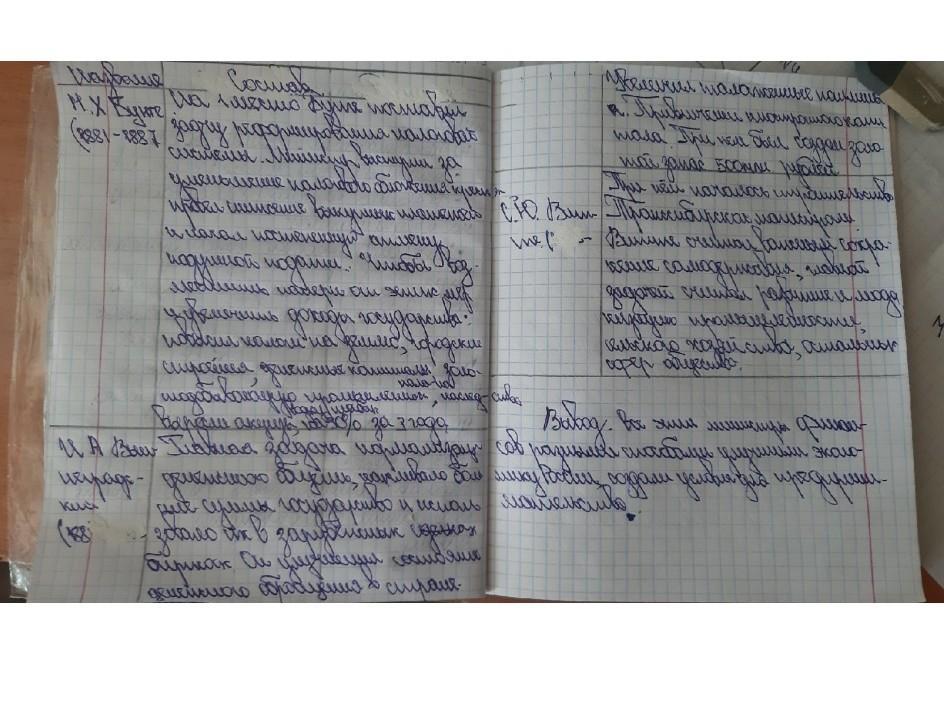 Название Состав
Н.Х. Бунге
(1881-1887
На 1 место Бунге поставил
задачу реформирования налоговой
системы. Министр выступил за
уменьшение налогового обложения крестьян
провел снижение выкупных платежей
и начал постепенную отмену
подушной подати. Чтобы воз-
местить потери он
увеличить доходы государства:
повысил налог на землю, городские
строения, денежные капиталы, золо-
тодобывающую промышленность, наслед-ства
налогов
выросли акцизы на 30% за 3 года.
И.А Выш-
неград-
кий
(188
Главная задача нормализация
денежного обращения, накапливало боль
шие суммы государство и исполь
зовало их в зарубежных
биржах Он улучшении состояния
денежного обращения в стране.
Увеличил таможенные пошлины
Привлечении иностранного капи
тала. При нем был создан золо
той запас рублей
С.Ю. Вит-
те. ( -
При нём началось строительство
Транссибирской магистрали
Витте считал важным сохра-
нение самодержавия, главной
задачей считал развитие и
промышленности,
сельского хозяйства, остальных
сфер общества.
Вывод: все эти министры финан-
сов разными способами улучшили эконо-
мику России, создали условия для предприни-
мательства.